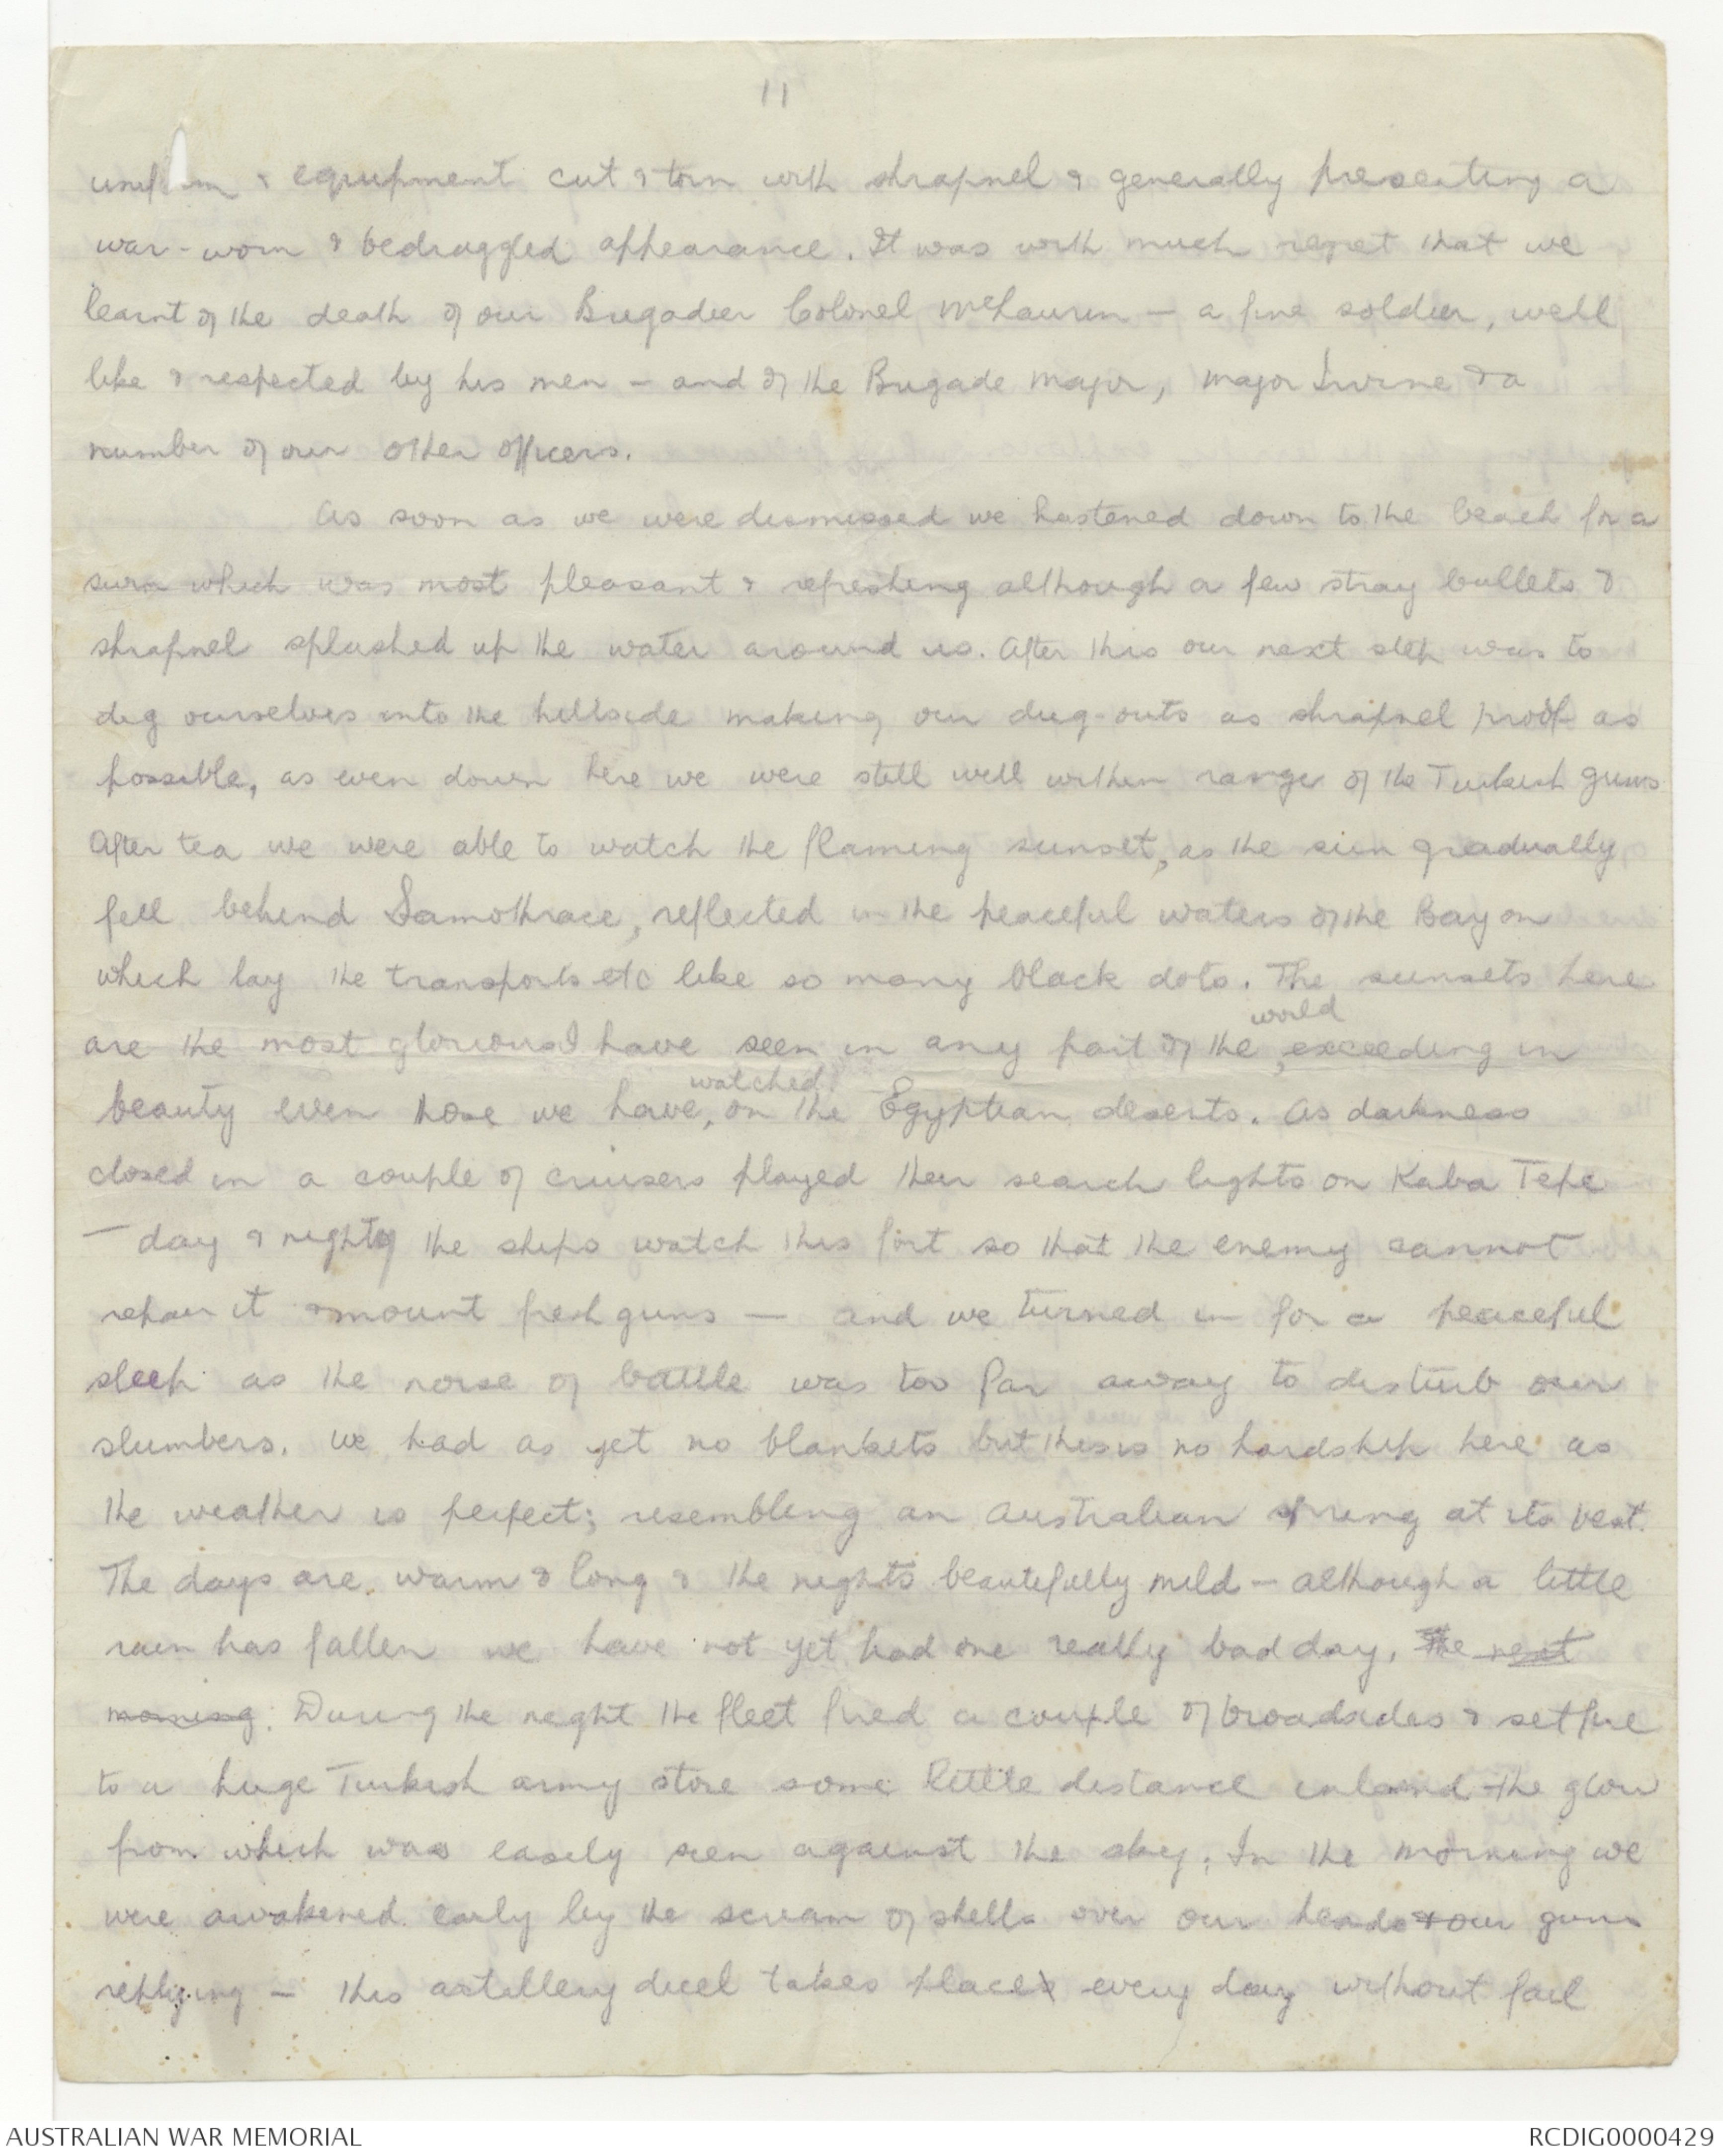 11
unif m & equipment cut & torn with shrapnel & generally presenting a
war-worn & bedraggled appearance. It was with much regret that we
learnt of the death of our Brigadier Colonel McLaurin — a fine soldier, well
like & respected by his men — and of the Brigade Major, Major Irvine & a
number of our other officers.
As soon as we were dismissed we hastened down to the beach for a
swim which was most pleasant & refreshing although a few stray bullets &
shrapnel splashed up the water around us. After this our next step was to
dig ourselves into the hillside making our dug-outs as shrapnel proof as
possible, as even down here we were still well within range of the Turkish guns
After tea we were able to watch the flaming sunset, as the sun gradually
fell behind Samothrace, reflected in the peaceful waters of the Bay on
which lay the transports etc like so many black dots. The sunsets here
world
are the most glorious I have seen in any part of the, exceeding in
watched
beauty even those we have, on the Egyptian deserts. As darkness
closed in a couple of cruisers played their search lights on Kaba Tepe
— day & night the ships watch this fort so that the enemy cannot
repair it or mount fresh guns — and we turned in for a peaceful
sleep as the noise of battle was too far away to disturb our
slumbers. We had as yet no blankets but this is no hardship here as
the weather is perfect; resembling an Australian spring at its best.
The days are warm & long & the nights beautifully mild — although a little
rain has fallen we have not yet had one really bad day. The next
morning. During the night the fleet fired a couple of broadsides & set fire
to a huge Turkish army store some little distance inland the glow
from which was easily seen against the sky. In the morning we
were awakened early by the scream of shells over our heads & our guns
replying — this artillery duel takes place every day without fail
AUSTRALIAN WAR MEMORIAL
RCDIG0000429